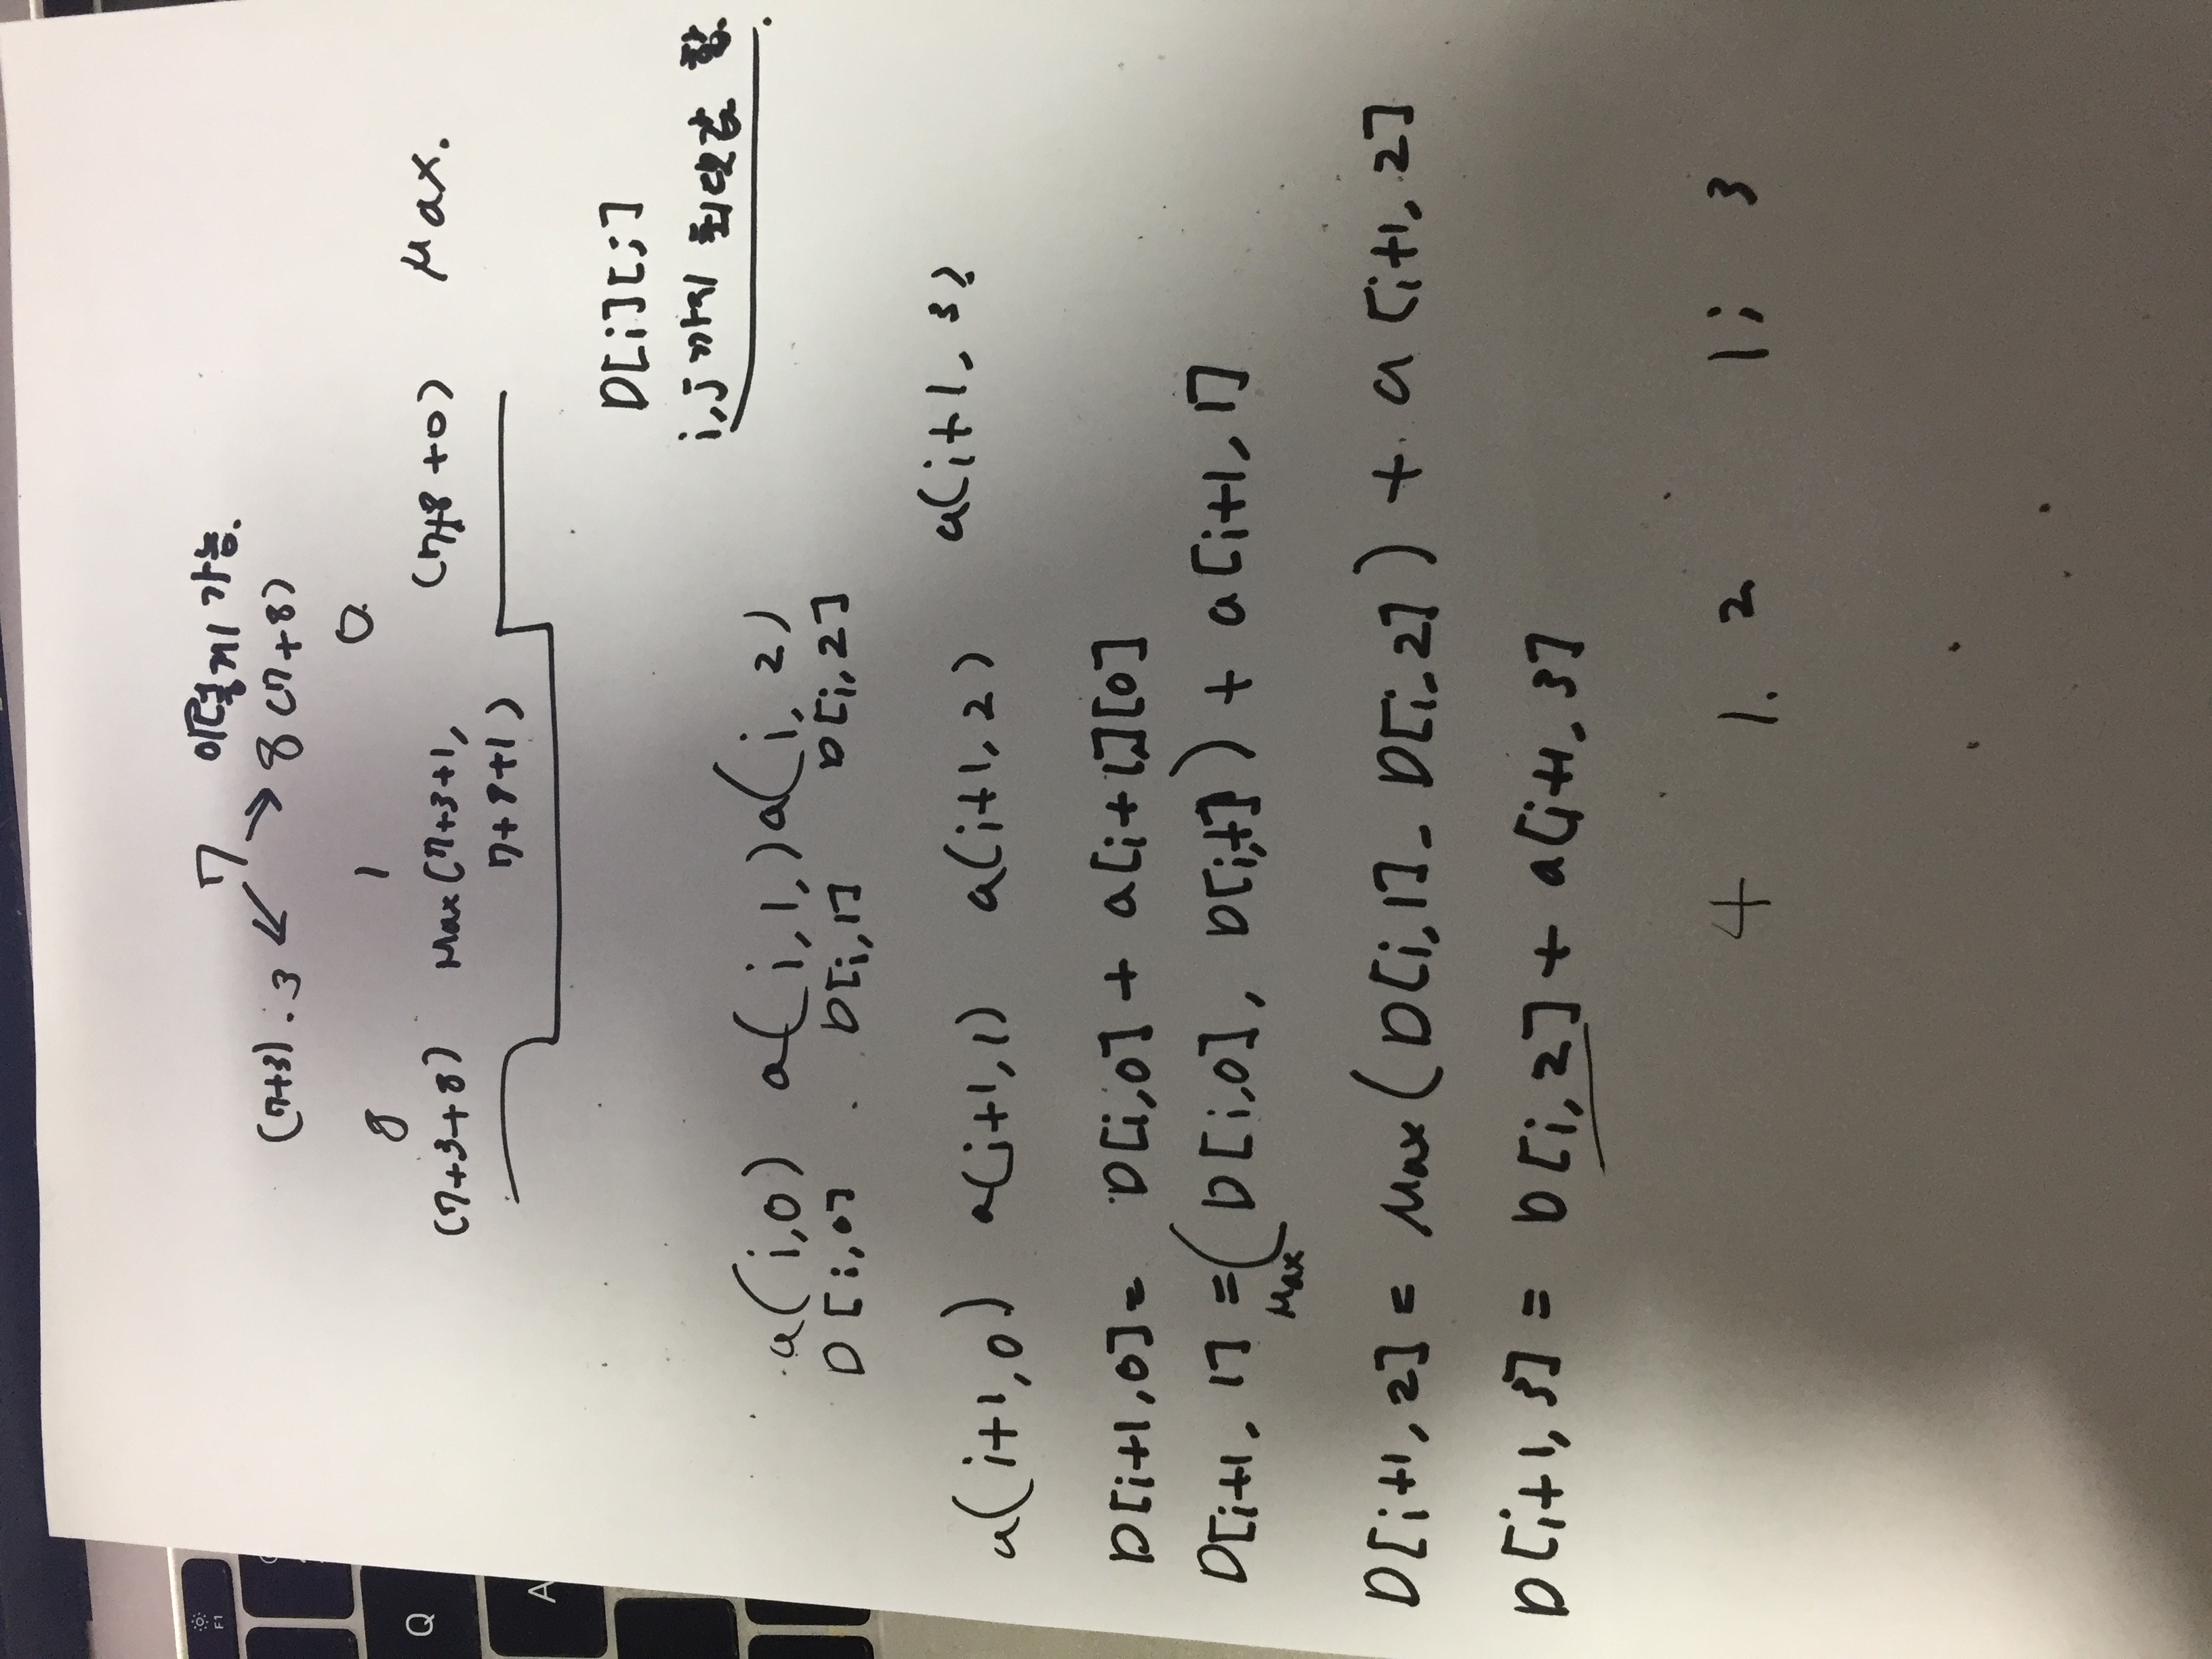 F1
Q
A
7 이렇게 가능.
(7+3) . 3 ↙ ↘ 8 (7+8)
8 1 0
(7+3+8) Max(7+3+1, (7+8+0) Max.
7+8+1)
D[i][j]
i,j 까지 최댓값 합.
a(i,0) a(i,1,) a(i, 2)
D[i,0] D[i,1] D[i,2]
a(i+1,0) a(i+1,1) a(i+1,2) a(i+1, 3)
D[i+1,0] = D[i,0] + a[i+1][0]
D[i+1, 1] = Max(D[i,0], D[i,1]) + a[i+1, 1]
D[i+1,2] = Max(D[i,1], D[i,2]) + a[i+1, 2]
D[i+1,3] = D[i,2] + a[i+1, 3]
4 1. 2 1; 3